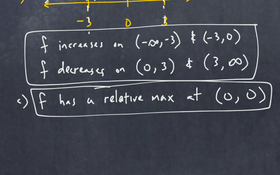 -3 0
f increases on (-∞,-3) & (-3,0)
f decreases on (0,3) & (3,∞)
c) f has a relative max at (0,0)